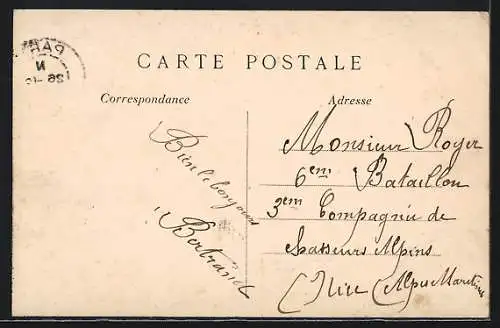 CARTE POSTALE
Correspondance
Adresse
Bien le bonjour
Bertrand
Monsieur Royer
6em Bataillon
3em Compagnie de
chasseurs Alpins
(Nice (Alpes Maritimes
PAR
N